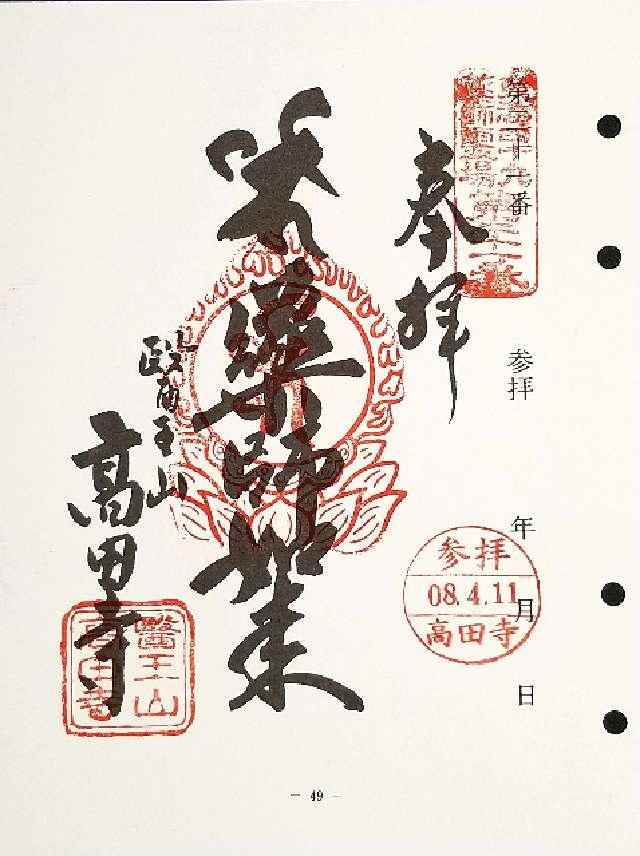 第二十一番
参拝
年
月
日
奉拝
薬師如来
医王山
高田寺
参拝
08.4.11
高田寺
醫王山
高田寺
- 49 -